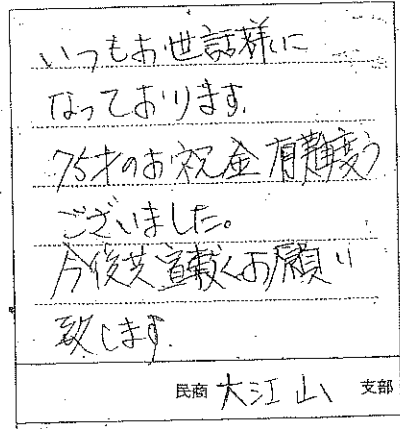 いつもお世話様に
なっております。
75才のお祝金有難度う
ございました。
今後共宜敷くお願い
致します。
民商 大江山 支部